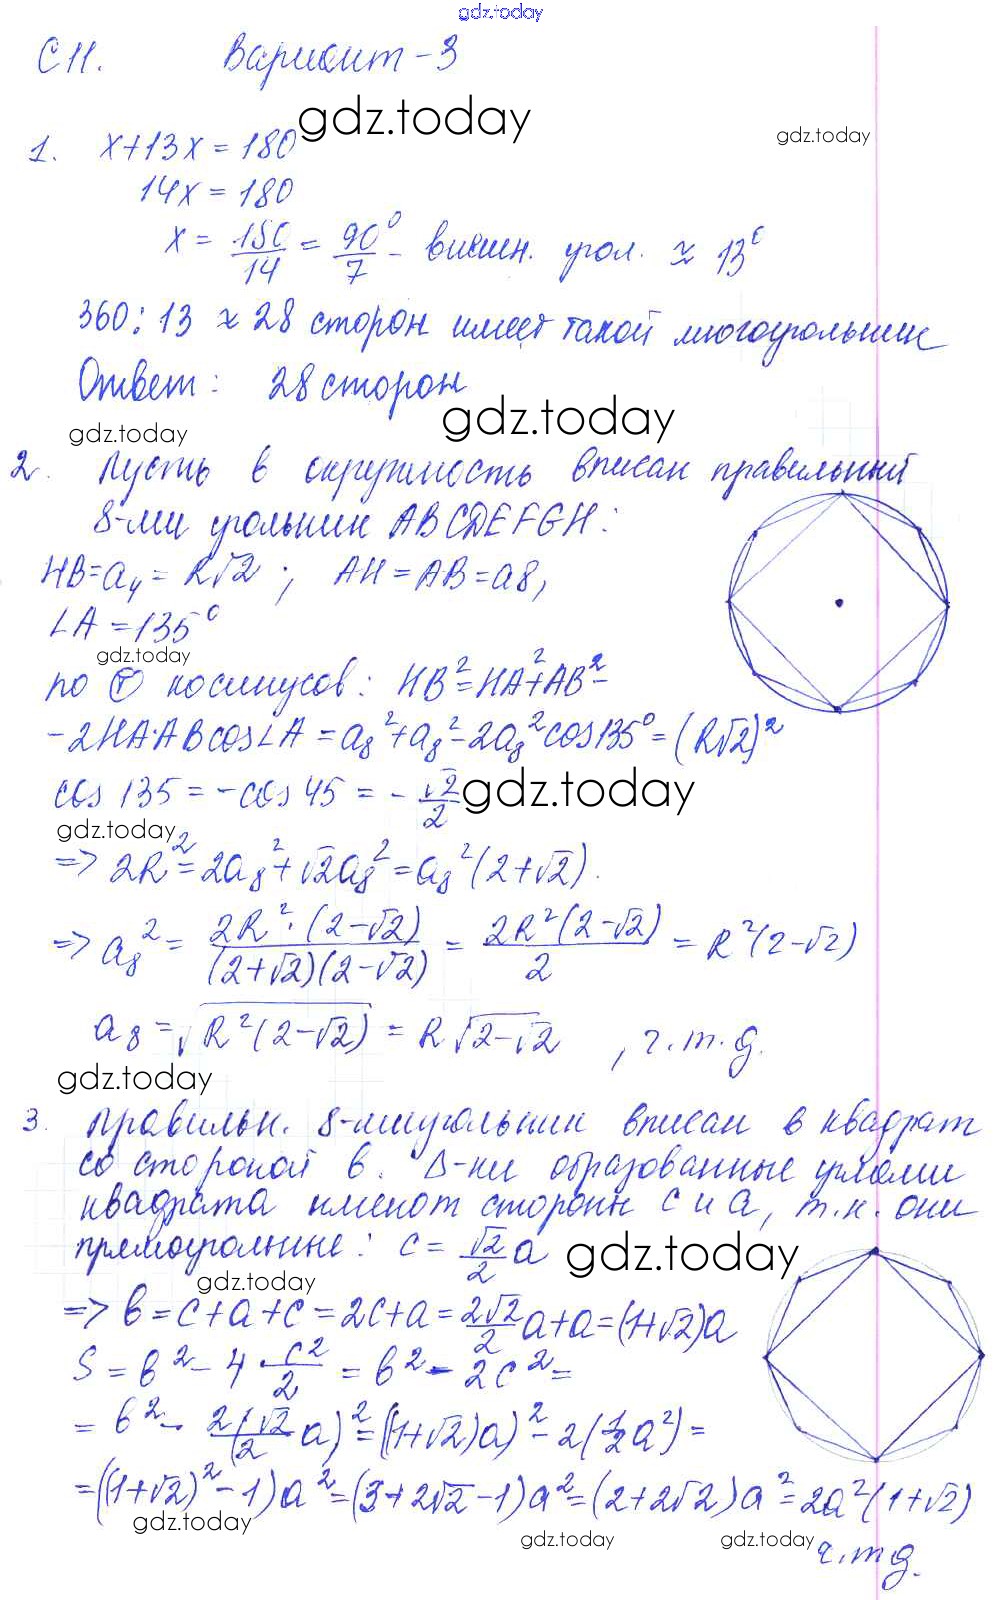 gdz.today
С11. Вариант-3
gdz.today
gdz.today
1. x+13x=180
14x=180
x = 180/14 = 90°/7 - внешн. угол. ≈ 13°
360:13 ≈ 28 сторон имеет такой многоугольник
Ответ: 28 сторон
gdz.today
gdz.today
2. Пусть в окружность вписан правильный
8-ми угольник ABCDEFGH:
HB=a₄=R√2; AH=AB=a8,
∠A=135°
gdz.today
по Т косинусов: HB²=HA²+AB²-
-2HA·ABcos∠A=a₈²+a₈²-2a₈²cos135°=(R√2)²
cos 135=-cos 45=-√2/2
gdz.today
gdz.today
=> 2R²=2a₈²+√2a₈²=a₈²(2+√2).
=> a₈² = 2R²·(2-√2)/(2+√2)(2-√2) = 2R²(2-√2)/2 = R²(2-√2)
a₈=√R²(2-√2) = R√2-√2, ч.т.д.
gdz.today
3. Правильн. 8-миугольник вписан в квадрат
со стороной b. Δ-ки образованные углами
квадрата имеют стороны c и a, т.к. они
прямоугольные: c = √2/2 a
gdz.today
gdz.today
=> b=c+a+c=2c+a=2√2/2 a+a=(1+√2)a
S=b²-4·c²/2=b²-2c²=
=b²-2(√2/2 a)²=((1+√2)a)²-2(1/2a²)=
=((1+√2)²-1)a²=(3+2√2-1)a²=(2+2√2)a²=2a²(1+√2)
gdz.today
gdz.today
gdz.today
ч.т.д.